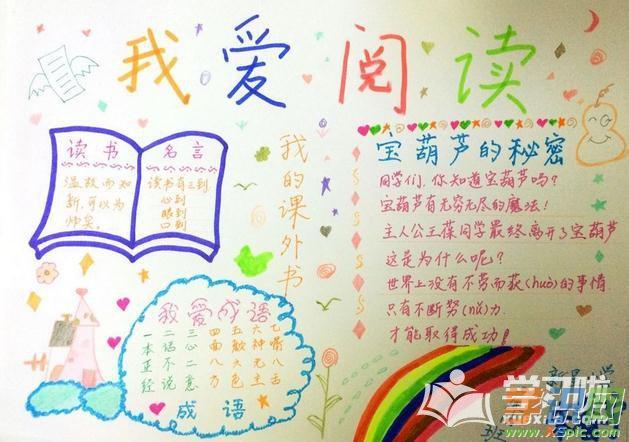 我爱阅读
读书
温故而知
新,可以为
师矣。
名言
读书有三到
心到
眼到
口到
我的课外书
宝葫芦的秘密
同学们,你知道宝葫芦吗?
宝葫芦有无穷无尽的魔法!
主人公王葆同学最终离开了宝葫芦
这是为什么呢?
世界上没有不劳而获(huò)的事情.
只有不断努(nǔ)力.
才能取得成功!
我爱成语
一本正经
二话不说
三心二意
四面八方
五颜六色
六神无主
七嘴八舌
成语
学习啦